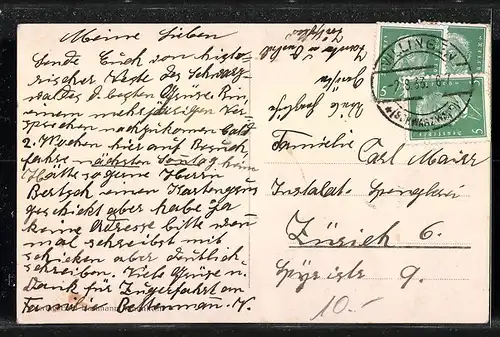 Meine Lieben
Sende Euch von histo-
rischer Veste des Schwarz-
waldes d. besten Grüsse. Bin
einem mehrjährigen Ver-
sprechen nachgekommen bald
2 Wochen hier auf Besuch
fahre nächsten Sonntag heim
Hätte so gerne Herrn
Bertsch einen Kartengruss
geschickt aber habe ja
keine Adresse bitte
mal schreibst mit
schicken aber deutlich
schreiben. Viele Grüsse u.
Dank für Zugerfahrt an
Familie Bettenmann. K.
VILLINGEN
(SCHWARZWALD)
5
5
Familie
Carl Maier
Instalat. Spenglerei
Zürich 6.
9.
10.-